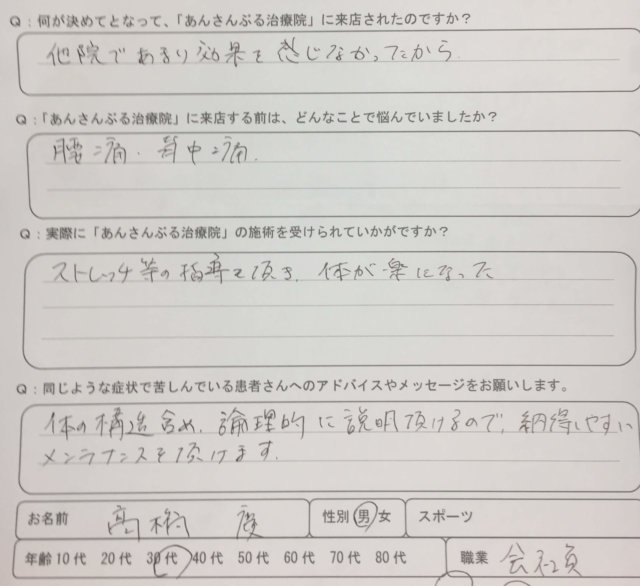 Q：何が決めてとなって、「あんさんぶる治療院」に来店されたのですか？
他院であまり効果を感じなかったから
Q：「あんさんぶる治療院」に来店する前は、どんなことで悩んでいましたか？
腰痛・背中痛.
Q：実際に「あんさんぶる治療院」の施術を受けられていかがですか？
ストレッチ等の指導を頂き、体が楽になった
Q：同じような症状で苦しんでいる患者さんへのアドバイスやメッセージをお願いします。
体の構造含め、論理的に説明頂けるので、納得しやすい
メンテナンスを頂けます.
お名前 高 性別 男 女 スポーツ
年齢 10代 20代 30代 40代 50代 60代 70代 80代 職業 会社員